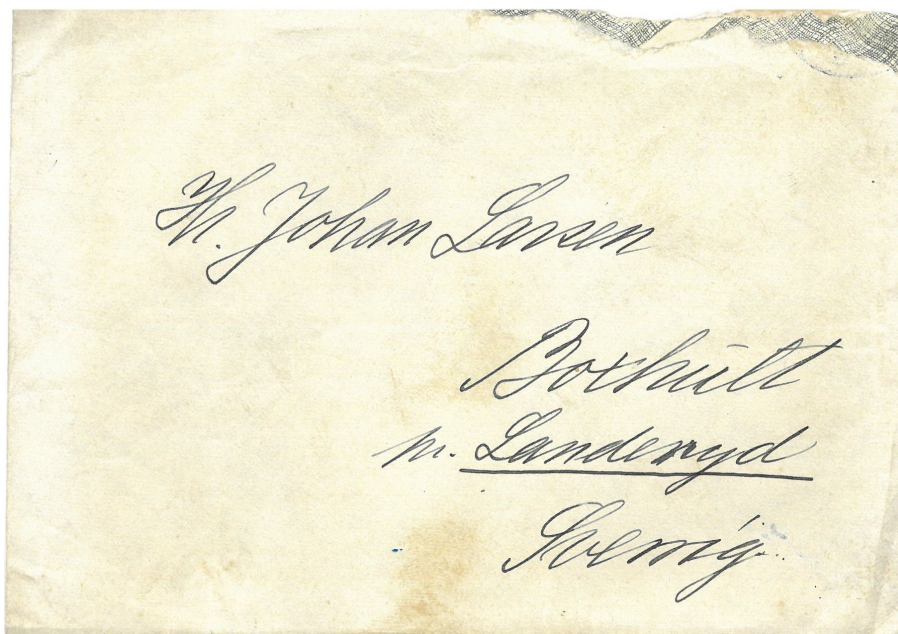 Hr. Johan Larsen
Boxhult
pr. Landeryd
Sverrig.